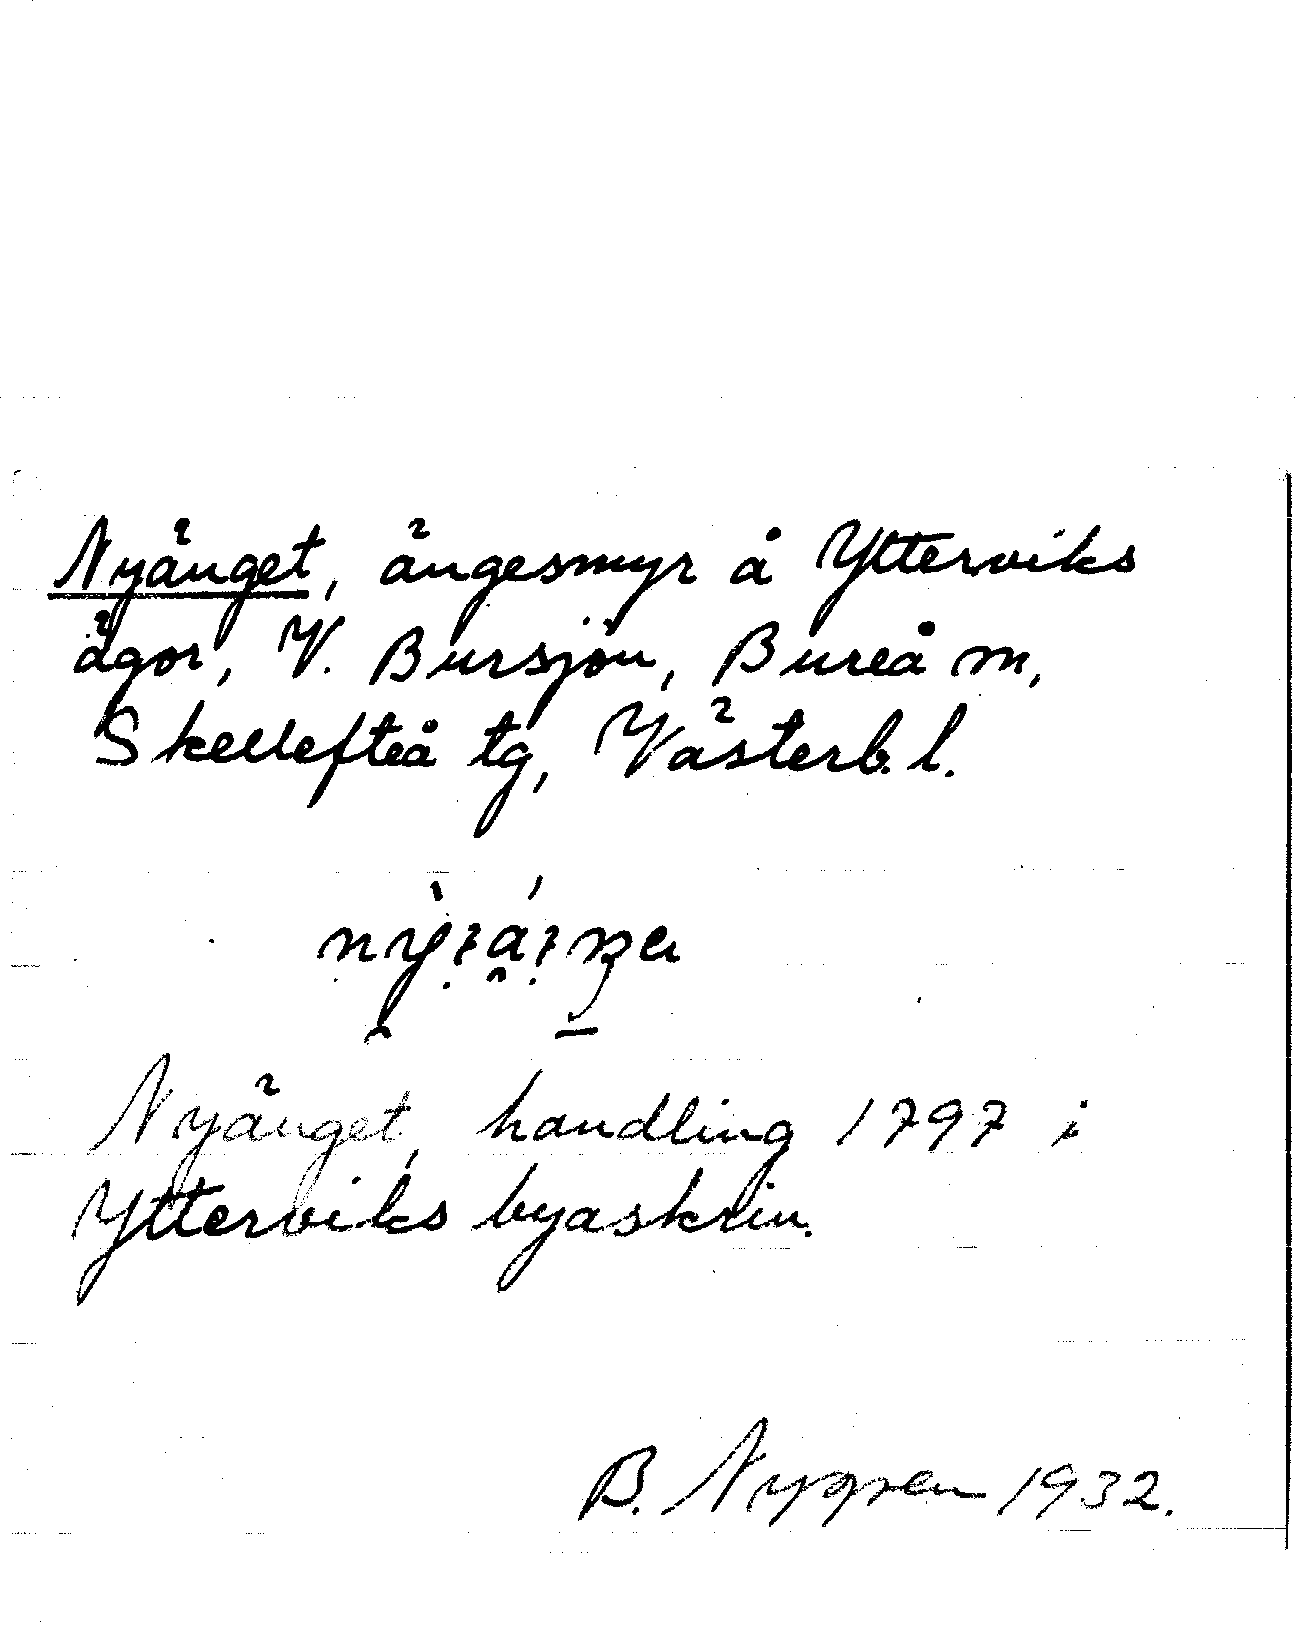 Nyänget, ängesmyr å Ytterviks
ägor, V. Bursjön, Bureå m,
Skellefteå tg, Västerb. l.
Nyänget, handling 1797 i
Ytterviks byaskrin.
B. Nygren 1932.